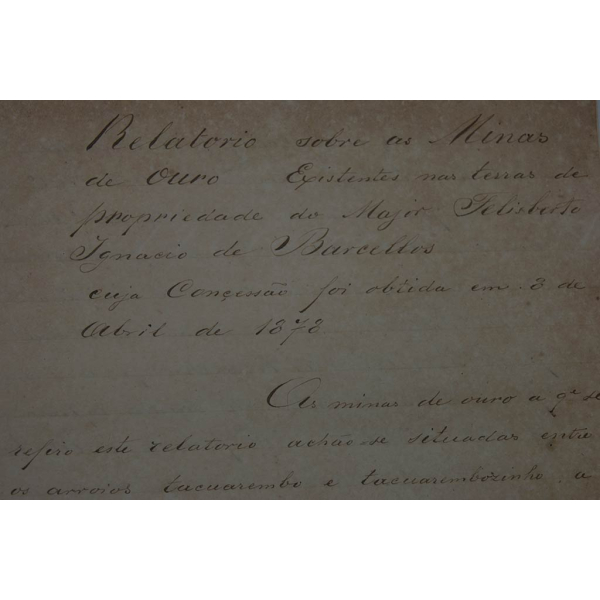 Relatorio sobre as Minas
de Ouro Existentes nas terras de
propriedade do Major Felisberto
Ignacio de Barcellos
cuja Concessão foi obtida em 3 de
Abril de 1878
As minas de ouro a q.e se
refiro este relatorio achão-se situadas entre
os arroios tacuarembo e tacuarembozinho, a